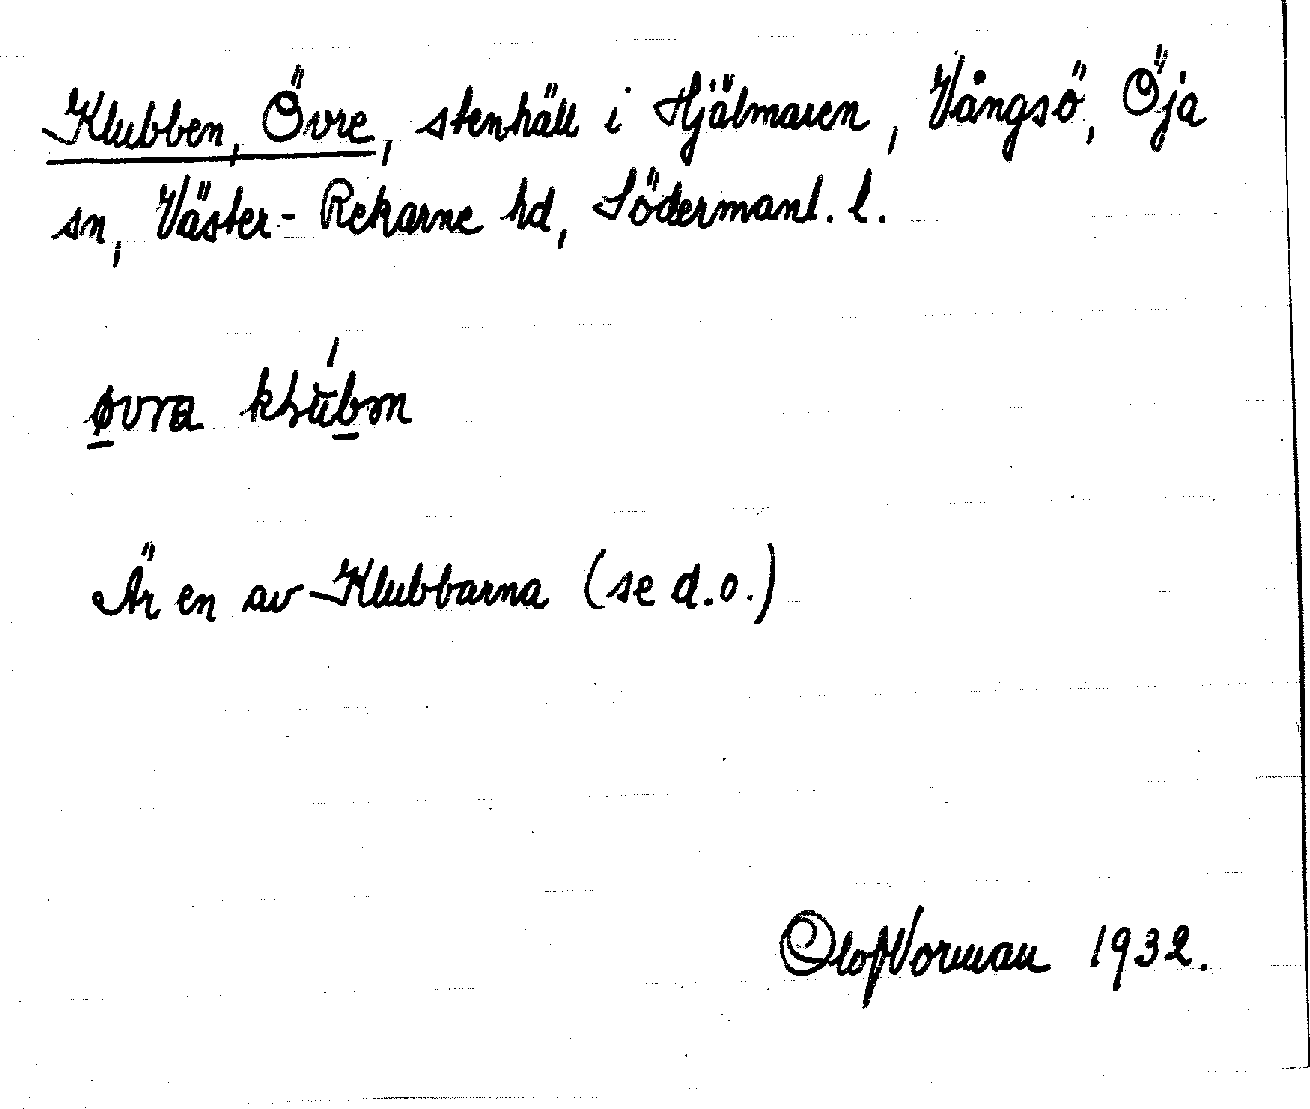 Klubben, Övre, stenhäll i Hjälmaren, Vångsö, Öja
sn, Väster-Rekarne hd, Södermanl. l.
Är en av Klubbarna (se d.o.)
Olof Norman 1932.